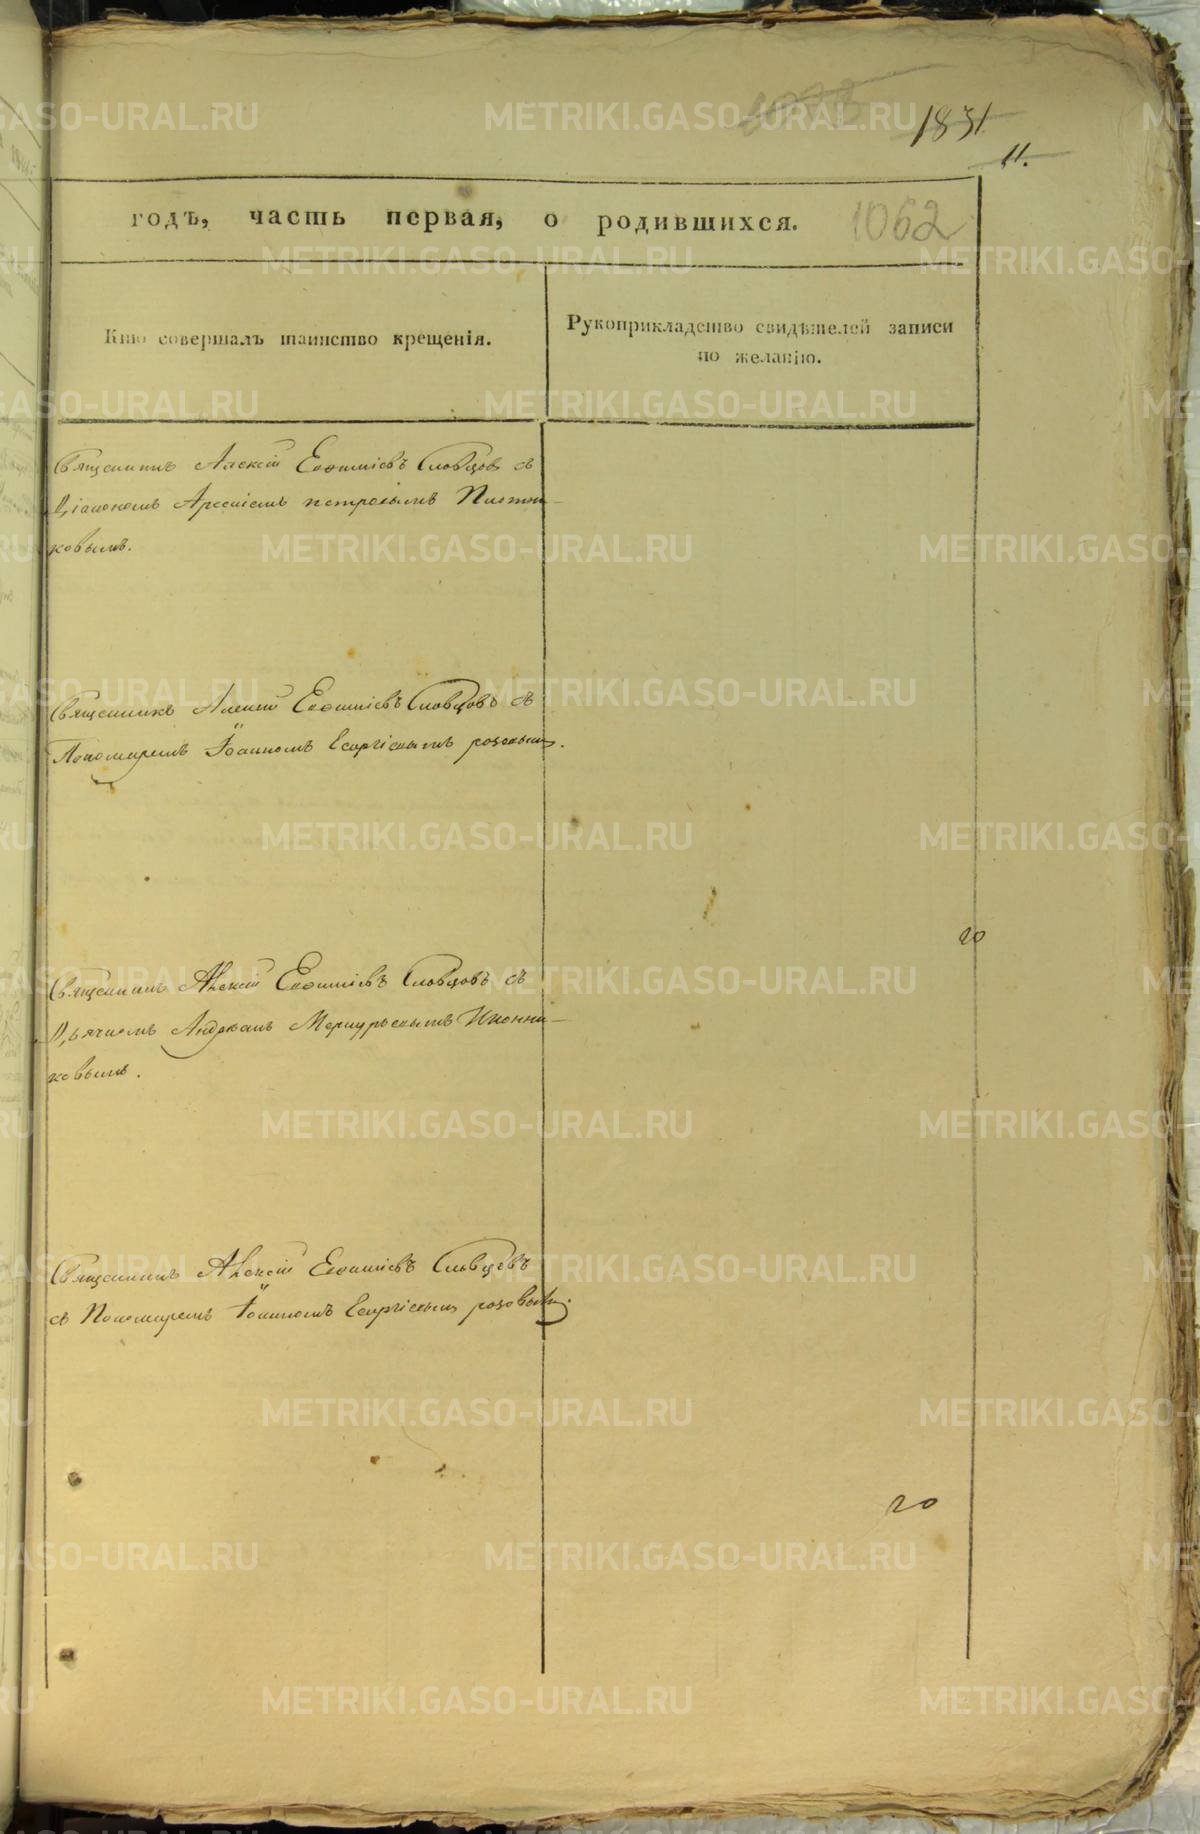 1831
11.
годъ, часть первая, о родившихся. 1062
Кто совершалъ таинство крещенія.
Рукоприкладство свидѣтелей записи
по желанію.
Священникъ Алексій Евфиміевъ Словцов съ
Діакономъ Арсеніемъ петровымъ Плотни-
ковымъ.
Священникъ Алексій Евфиміевъ Словцовъ съ
Пономаремъ Іоанномъ Георгіевымъ розовым.
20
Священникъ Алексій Евфиміевъ Словцовъ съ
Дьячкомъ Меркурьевымъ Иконни-
ковымъ.
Священникъ Алексій Евфиміевъ Словцовъ
съ Пономаремъ Іоанномъ Георгіевым розовым.
20
METRIKI.GASO-URAL.RU